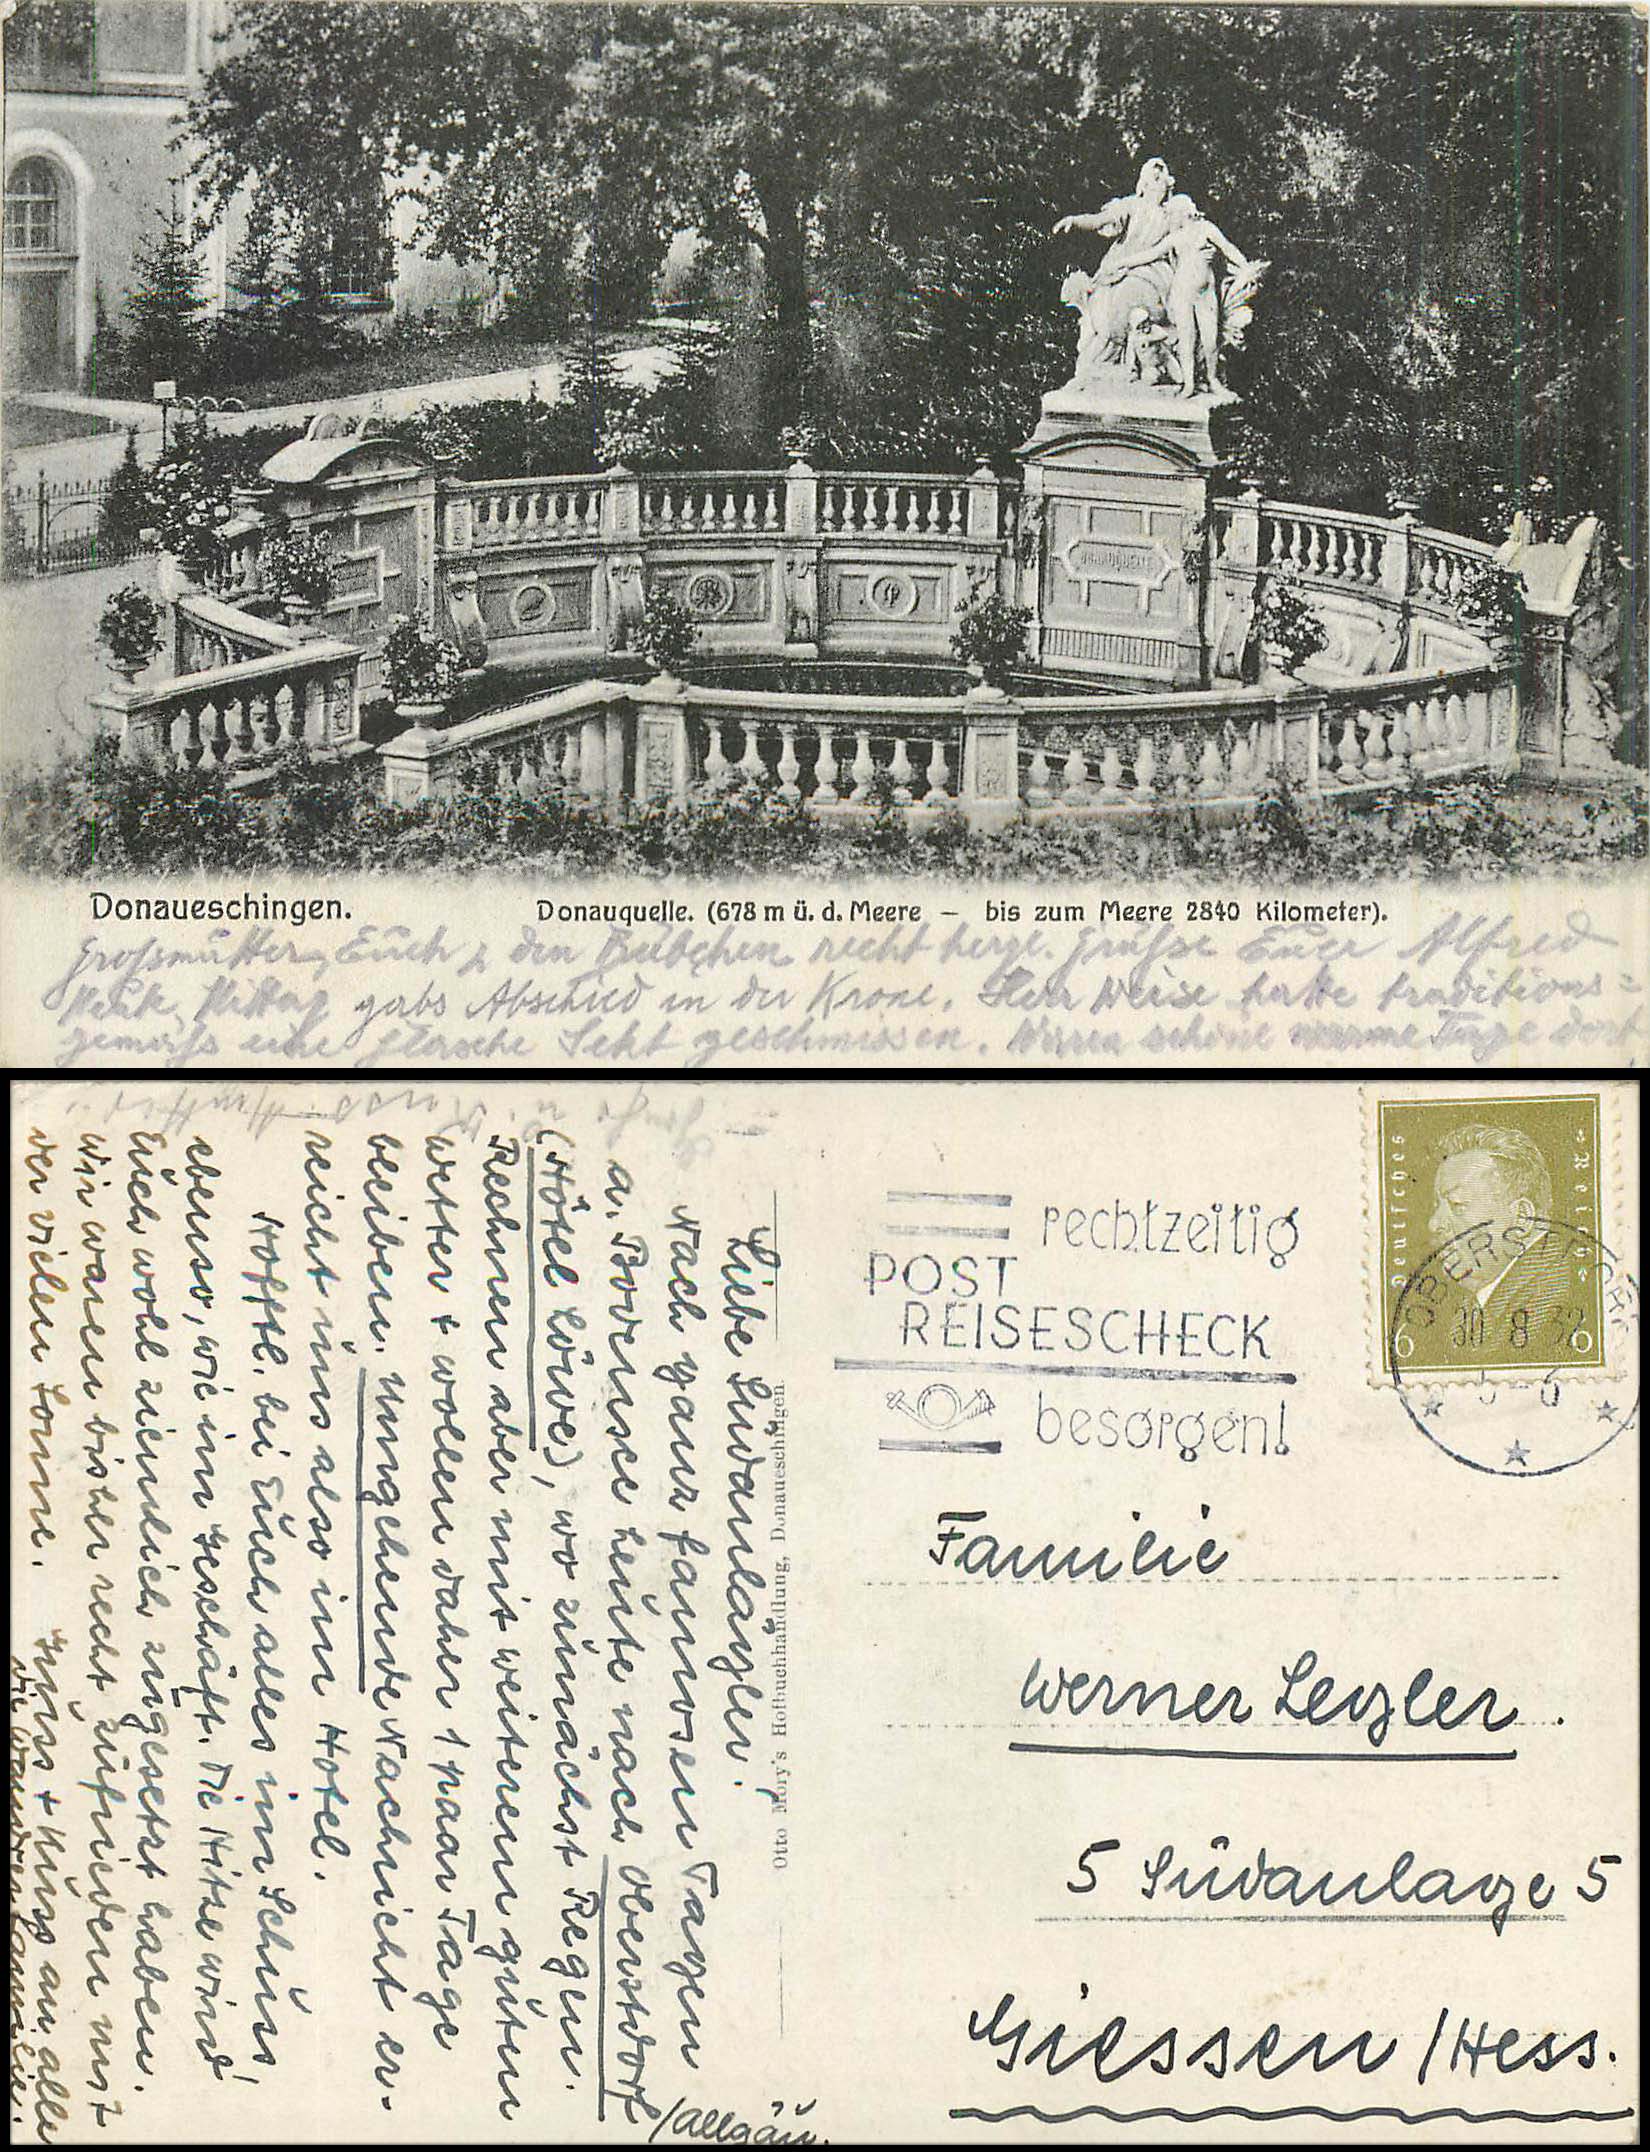 Donaueschingen. Donauquelle. (678 m ü. d. Meere — bis zum Meere 2840 Kilometer).
Grossmutter, Euch & den Bübchen recht herzl. Grüsse Euer Alfred
Heute Mittag gabs Abschied in der Krone. Herr Weise hatte traditions=
gemäss eine Flasche Sekt geschmissen. Waren schöne warme Tage dort
rechtzeitig
POST
REISESCHECK
besorgen!
Deutsches Reich
6 6
OBERSTDORF
30 8 32
5-6
Familie
Werner Lezler.
5 Südanlage 5
Giessen / Hess.
Otto Mory's Hofbuchhandlung, Donaueschingen.
Liebe Südanlägler!
Nach ganz famosen Tagen
a. Bodensee heute nach Oberstdorf
/Allgäu.
(Hotel Löwe), wo zunächst Regen.
Rechnen aber mit weiterem guten
Wetter + wollen daher 1 paar Tage
bleiben. Umgehende Nachricht er-
reicht uns also im Hotel.
Hofftl. bei Euch alles im Schuss,
ebenso, wie im Geschäft. Die Hitze wird
Euch wohl ziemlich zugesetzt haben.
Wir waren bisher recht zufrieden mit
der vielen Sonne.
Gruss + Kuss an alle